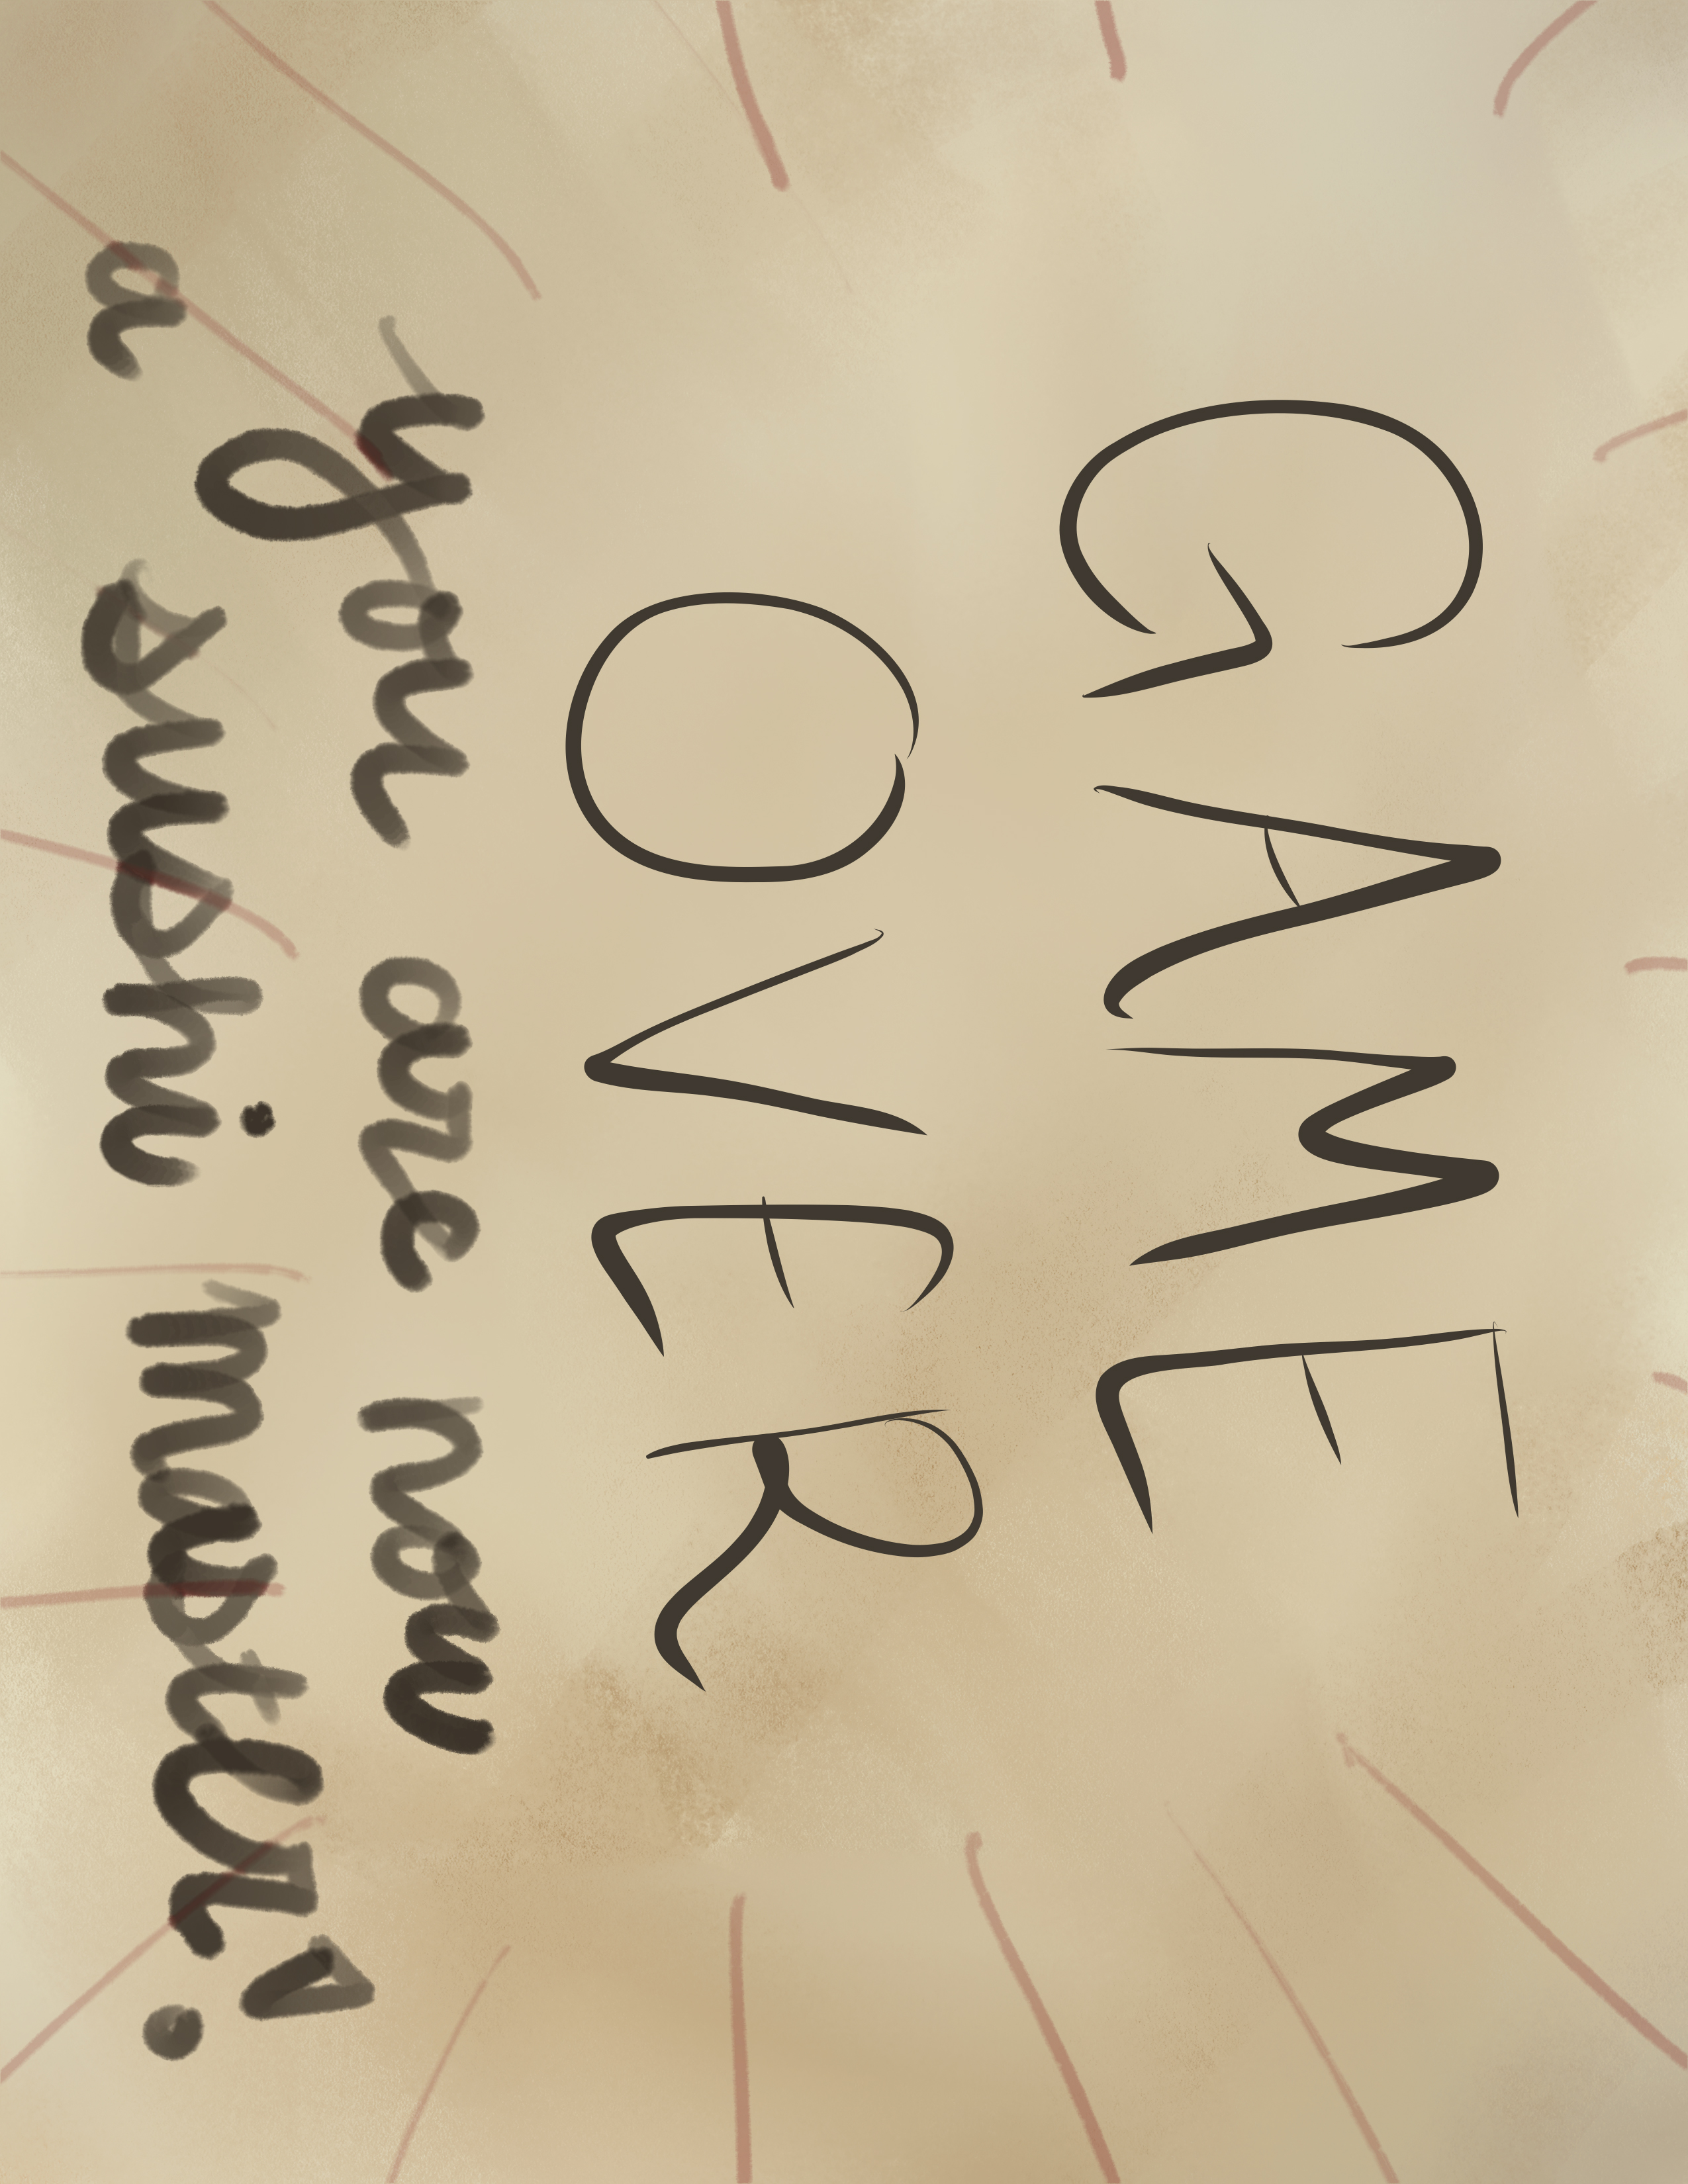 GAME
OVER
you are now
a sushi master!